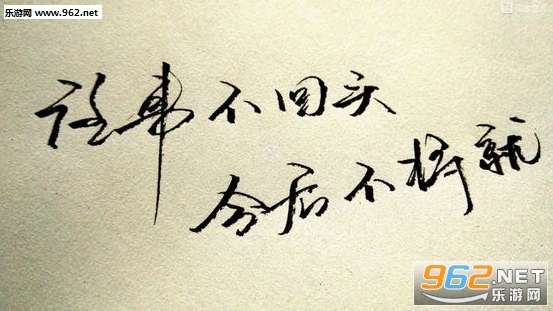 乐游网
www.962.net
往事不回头
今后不将就
962.NET
乐游网